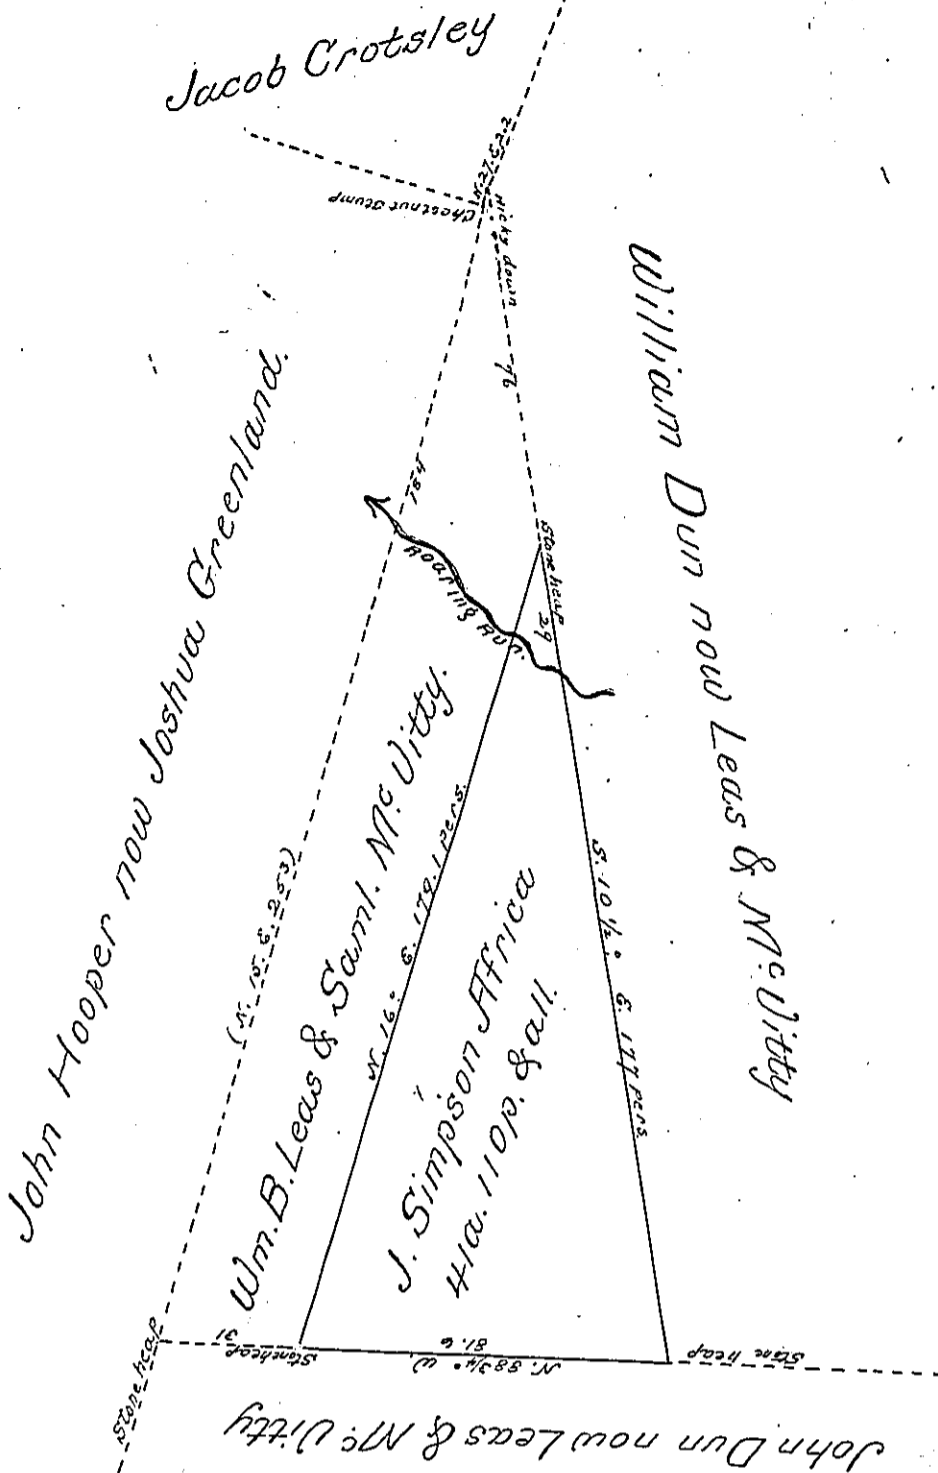 Jacob Crotsley
N. 27. E. 22
Chestnut Stump
Hicky down
76
William Dun now Leas & Mc. Vitty
John Hooper now Joshua Greenland.
184
Roaring Run.
Stone heap
29
(N. 15. E. 253)
Wm. B. Leas & Saml. Mc. Vitty.
N. 16° E. 179.1 pers.
S. 10 1/2° E. 177 pers.
J. Simpson Africa
41a. 110p. & all.
Stone heap
31
Stoneheap
81.6
N. 88 3/4° W
Stone heap
John Dun now Leas & Mc. Vitty